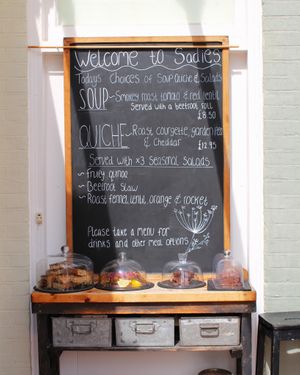 Welcome to Sadies
Todays Choices of Soup, Quiche & Salads
SOUP - Smokey roast tomato & red lentil
Served with a beetroot roll
£8.50
QUICHE - Roast courgette, garden pea
& Cheddar £12.95
Served with x3 Seasonal Salads
~ Fruity quinoa
~ Beetroot Slaw
~ Roast fennel, lentil, orange & rocket
Please take a menu for
drinks and other meal options